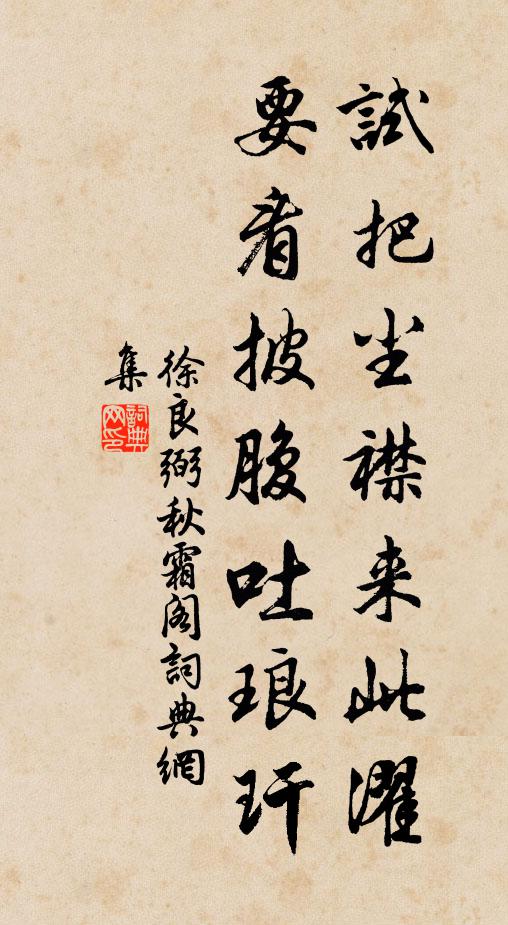 試把尘襟来此濯
要看披腹吐琅玕
徐良弼秋霜阁詞典網
集
詞典
网印